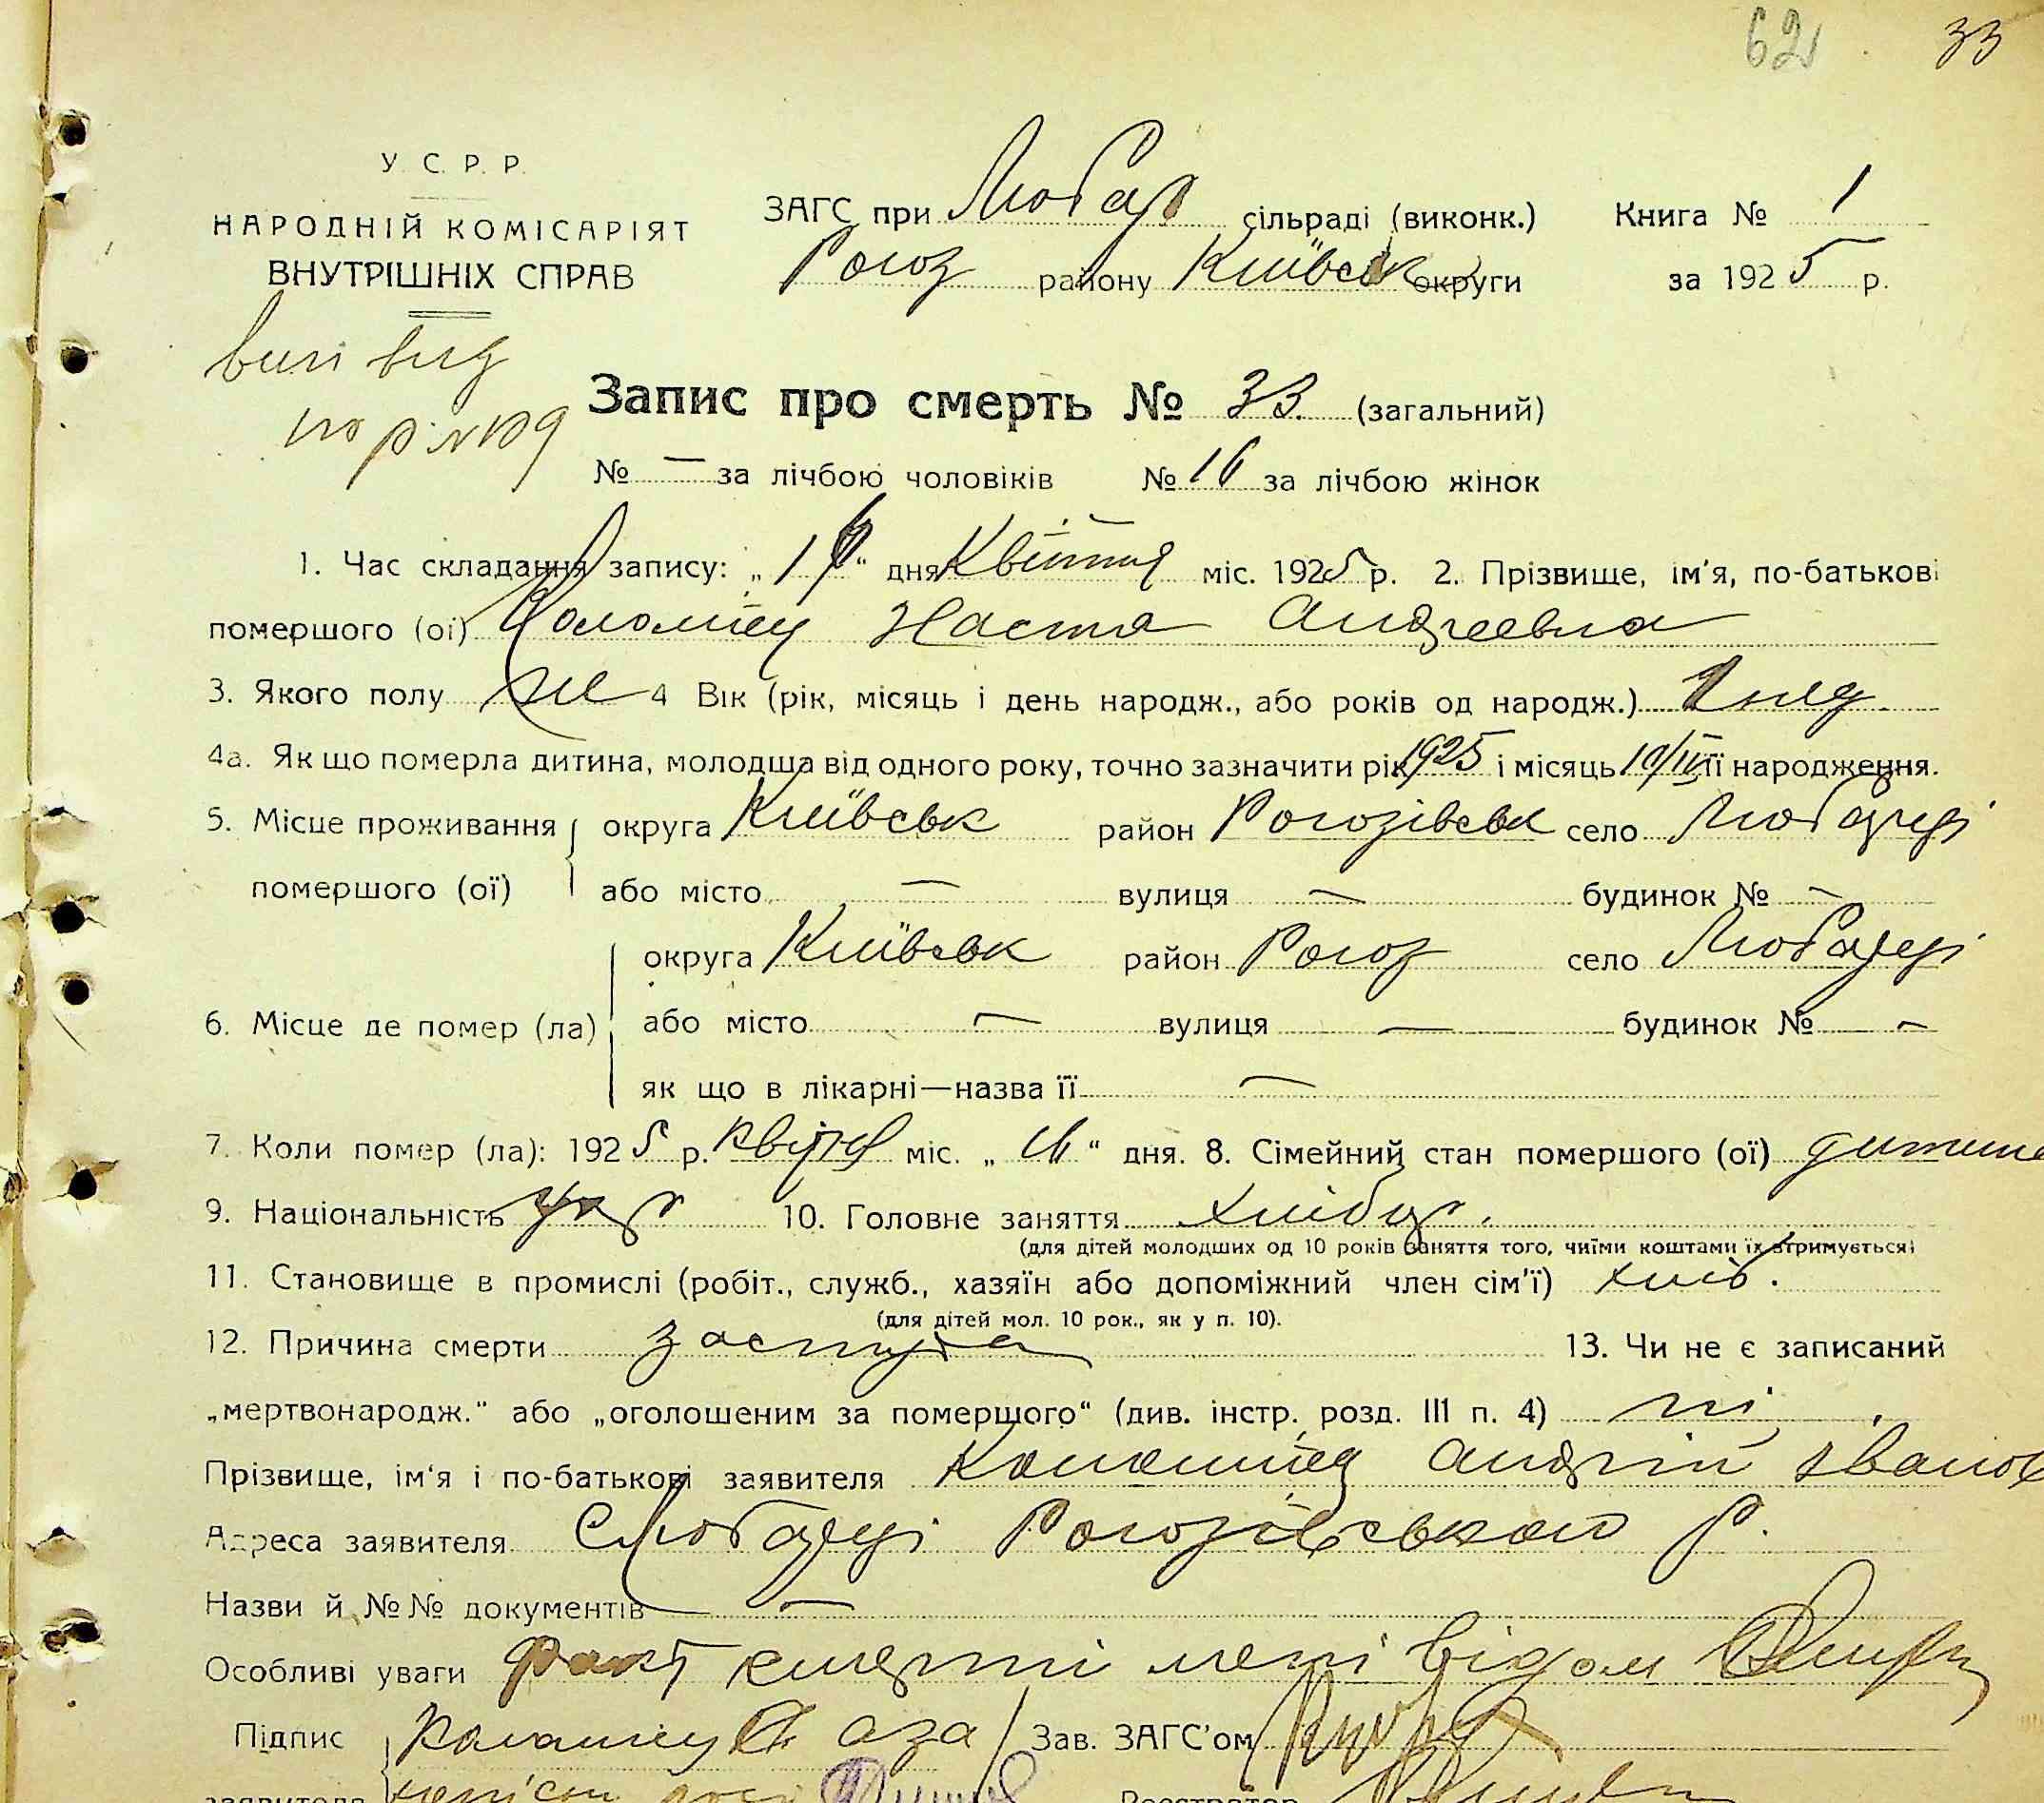 62 33
У. С. Р. Р.
НАРОДНІЙ КОМІСАРІЯТ
ВНУТРІШНІХ СПРАВ
ЗАГС при Любар сільраді (виконк.)
Рогоз району Київськ округи
Книга № 1
за 1925 р.
Запис про смерть № 33 (загальний)
№ — за лічбою чоловіків № 16 за лічбою жінок
1. Час складання запису: „ “ дня Квітня міс. 1925 р. 2. Прізвище, ім'я, по-батькові
помершого (ої) Коломієц Настя Андреевна
3. Якого полу же 4 Вік (рік, місяць і день народж., або років од народж.)
4а. Як що померла дитина, молодща від одного року, точно зазначити рік 1925 і місяць 10/IV її народження.
5. Місце проживання помершого (ої) округа Київськ район Рогозівськ село Любарці
або місто — вулиця — будинок № —
6. Місце де помер (ла) округа Київськ район Рогоз село Любарці
або місто — вулиця — будинок № —
як що в лікарні—назва її —
7. Коли помер (ла): 1925 р. квітня міс. „ “ дня. 8. Сімейний стан помершого (ої) дитина
9. Національність укр 10. Головне заняття хлібор.
(для дітей молодших од 10 років заняття того, чиїми коштами їх втримується)
11. Становище в промислі (робіт., служб., хазяїн або допоміжний член сім'ї) хліб.
(для дітей мол. 10 рок., як у п. 10).
12. Причина смерти застуда 13. Чи не є записаний
„мертвонародж.“ або „оголошеним за помершого“ (див. інстр. розд. III п. 4) ні
Прізвище, ім'я і по-батькові заявителя Коломиец Андрій Іванов
Адреса заявителя С Любарці Рогозівського р.
Назви й №№ документів —
Особливі уваги Факт смерти мені відом
Підпис Зав. ЗАГС'ом
заявителя Реєстратор